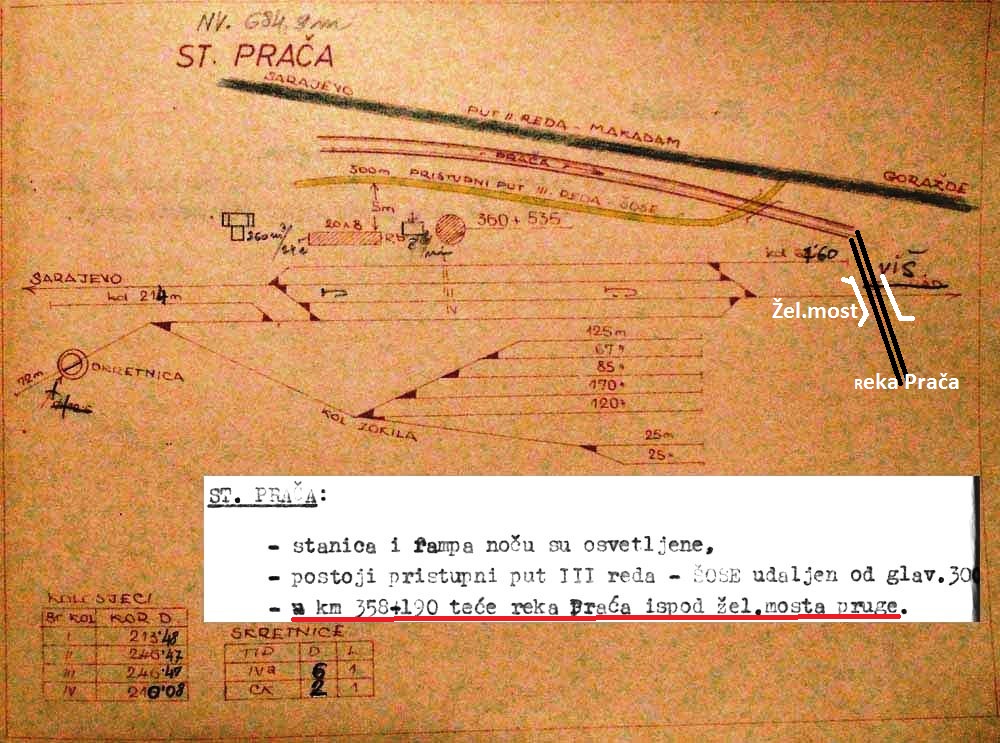 NV. 684,9 m
ST. PRAČA
SARAJEVO
PUT II REDA - MAKADAM
PRAČA
300m PRISTUPNI PUT III. REDA - ŠOSE
GORAŽDE
5m
20x8
360 + 535
SARAJEVO
kol 214m
II
III
IV
viš.
Žel.most
OKRETNICA
72m
KOL JOKILA
125m
67"
85"
170"
120"
25m
25"
Reka Prača
ST. PRAČA:
- stanica i rampa noču su osvetljene,
- postoji pristupni put III reda - ŠOSE udaljen od glav.300
- u km 358+190 teće reka Praća ispod žel.mosta pruge.
KOLOSJECI
Br KOL KOR D
I 213'48
II 246'47
III 246'47
IV 210'08
SKRETNICE
TIP D L
IVa 6 1
ČK 2 1